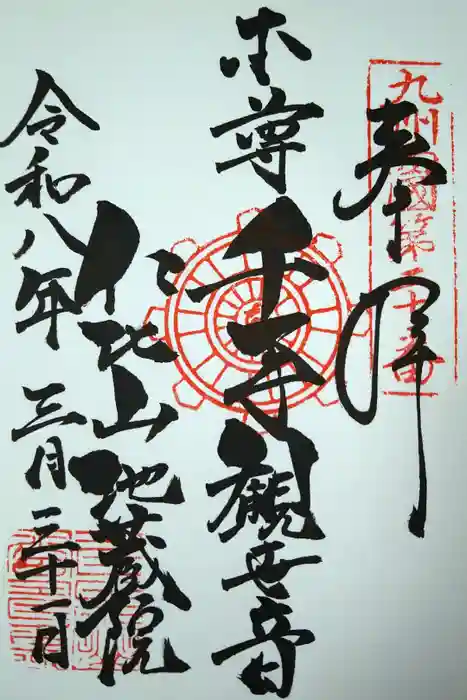 奉拜
九州西國第二十番
本尊 千手觀世音
仁比山 地蔵院
令和八年 三月三十一日